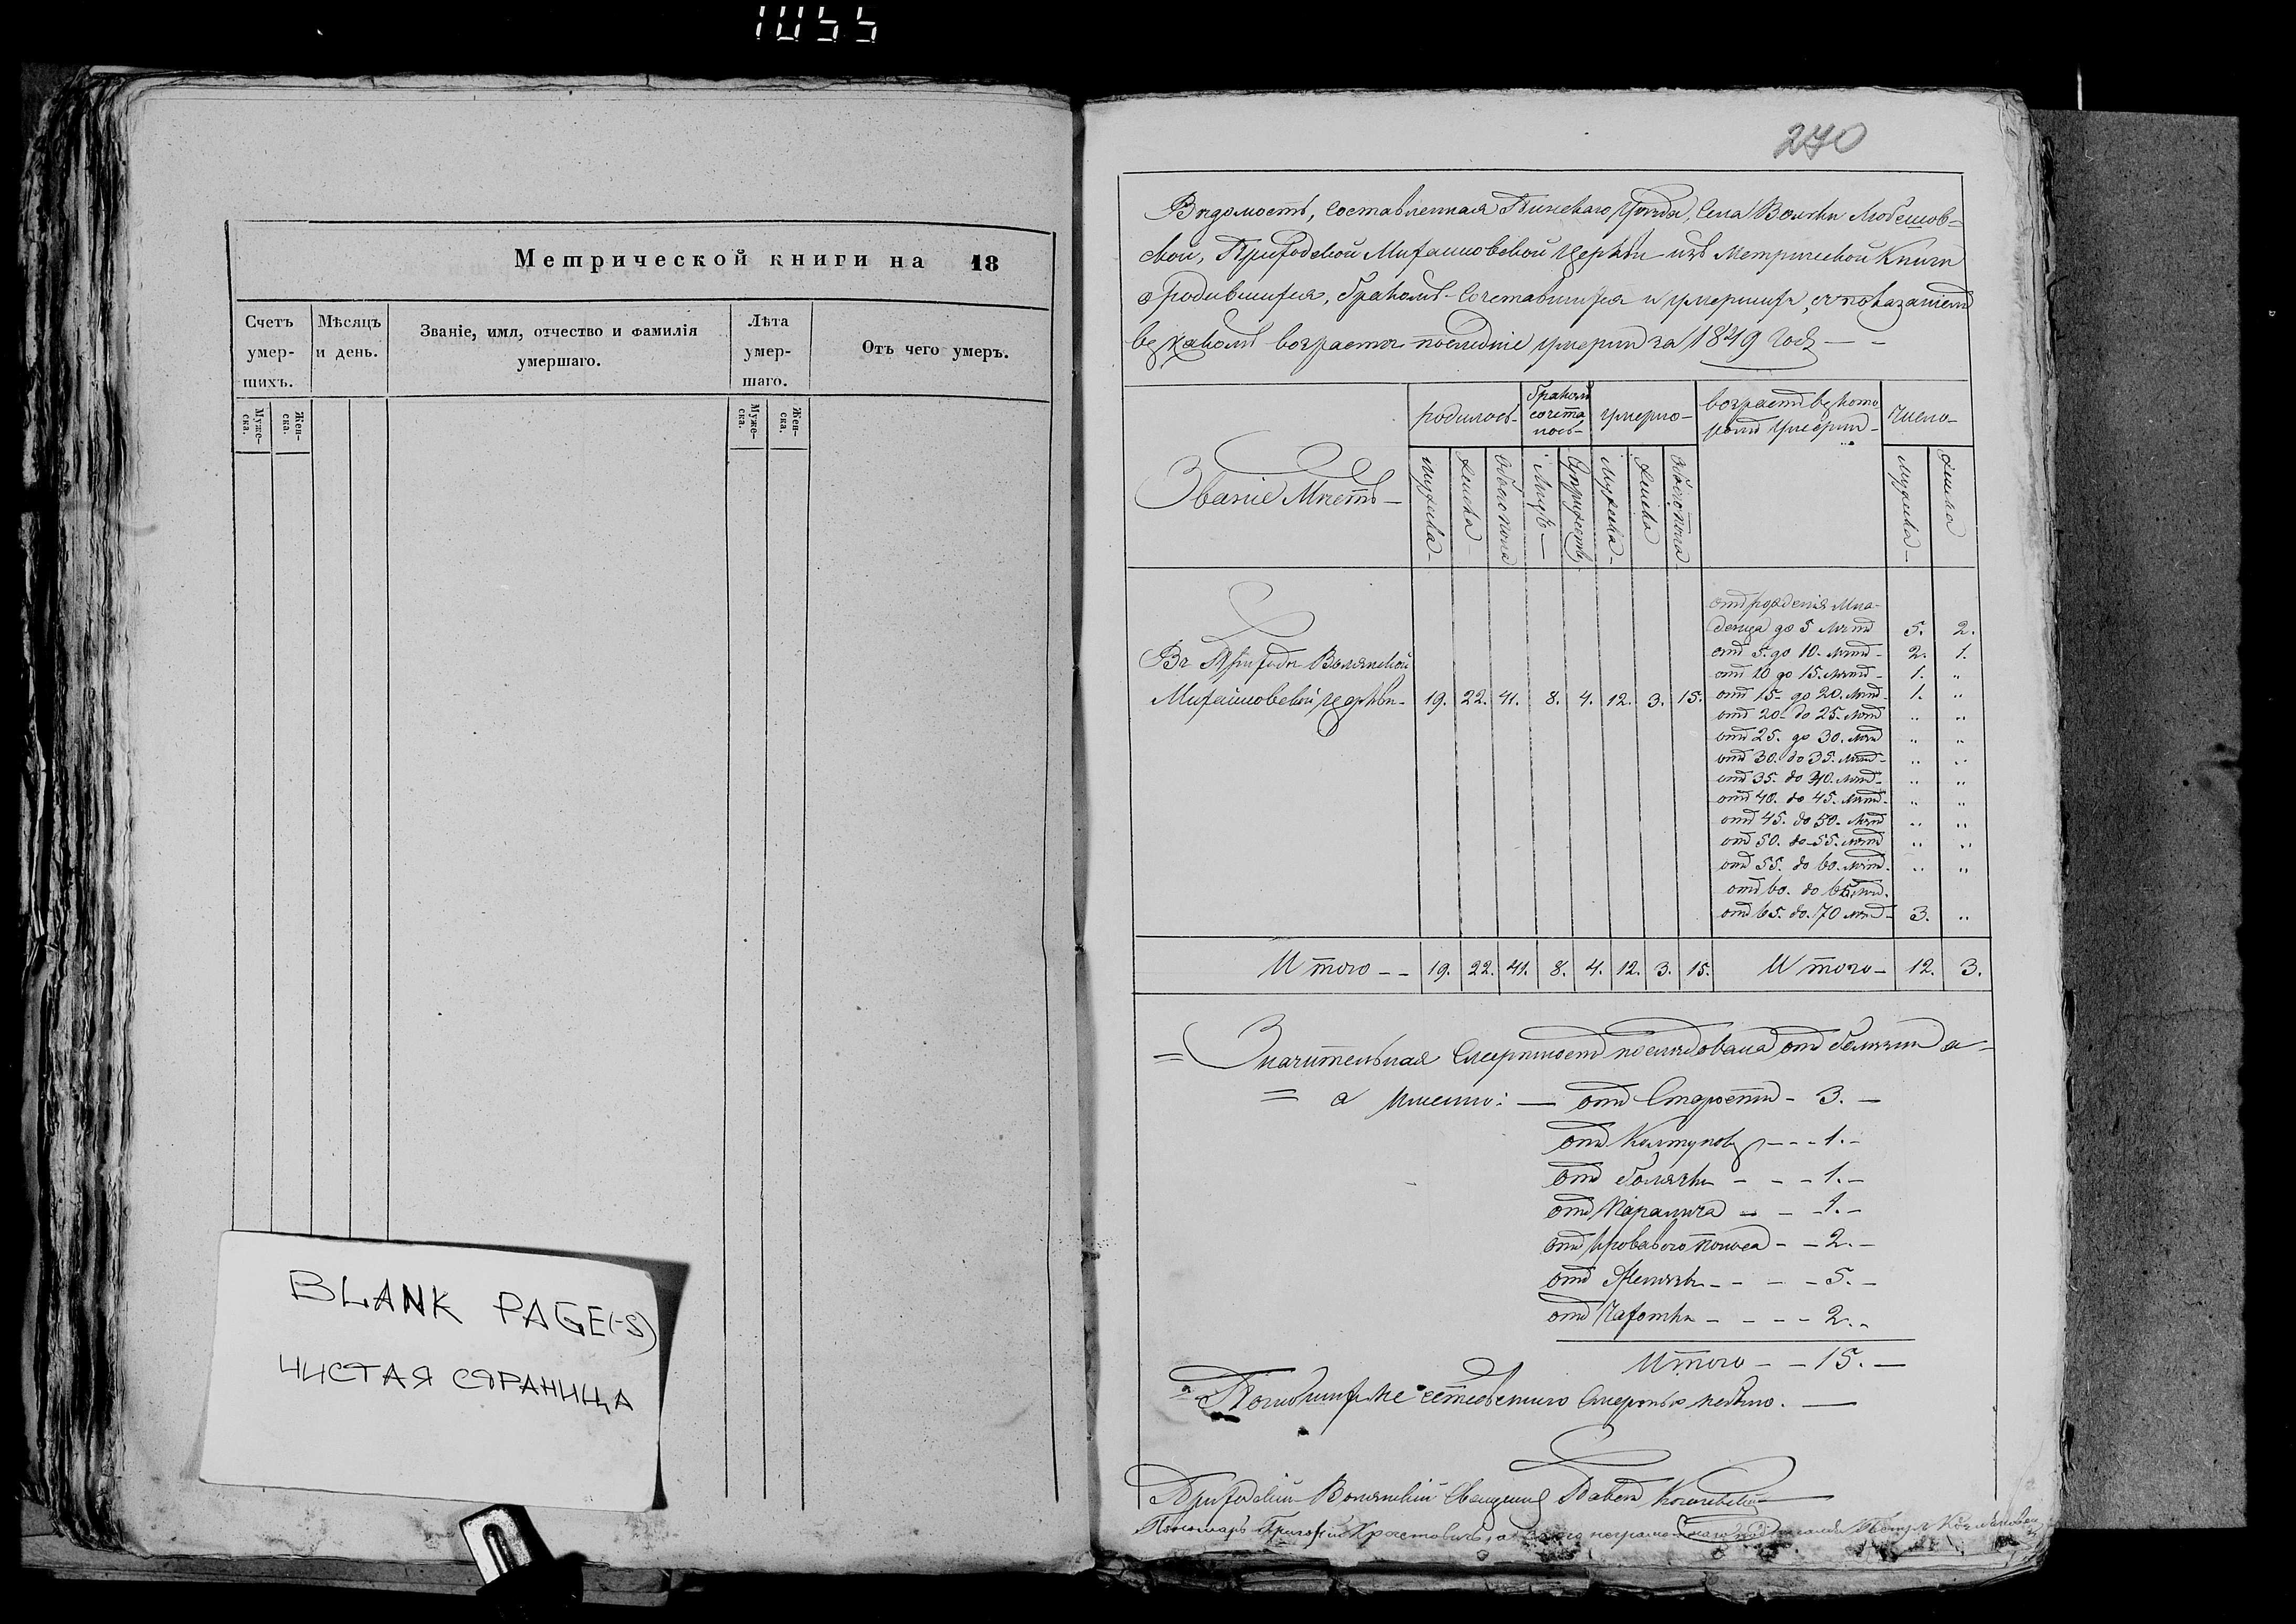 1055
Метрической книги на 18
Счетъ умер-шихъ.
Мѣсяцъ и день.
Званіе, имя, отчество и фамилія умершаго.
Лѣта умер-шаго.
Отъ чего умеръ.
Муже-ска.
Жен-ска.
Муже-ска.
Жен-ска.
BLANK PAGE(-S)
ЧИСТАЯ СТРАНИЦА
270
Вѣдомость, составленная Пинскаго Уѣзда, Села Волянки Любешов-
ской, Приходской Михайловской Церкви изъ Метрической Книги
о родившихся, бракомъ сочетавшихся и умершихъ, съ показаніемъ
въ какомъ возрастѣ послѣдніе умерли за 1849 годъ — —
Званіе Мѣстъ —
родилось-
бракомъ сочета лось-
умерло-
возрастъ въ кото ромъ умерли-
число-
мужеска-
женска
обоего пола
Лицъ —
Супружествъ
Мужеска-
женска
обоего пола
Мужеска-
женска
Въ Приходѣ Волянской
Михайловской церкви- 19. 22. 41. 8. 4. 12. 3. 15.
отъ рожденія мла-
денца до 5 лѣтъ 5. 2.
отъ 5. до 10. лѣтъ- 2. 1.
отъ 10 до 15. лѣтъ- 1. "
отъ 15- до 20. лѣтъ- 1. "
отъ 20- до 25- лѣтъ " "
отъ 25. до 30. лѣтъ " "
отъ 30. до 35. лѣтъ- " "
отъ 35. до 40. лѣтъ- " "
отъ 40. до 45. лѣтъ- " "
отъ 45. до 50. лѣтъ " "
отъ 50. до 55. лѣтъ " "
отъ 55. до 60. лѣтъ- " "
отъ 60. до 65 лѣтъ-
отъ 65. до 70 лѣтъ- 3. "
Итого - - 19. 22. 41. 8. 4. 12. 3. 15. Итого- 12. 3.
= Значительная Смертность послѣдовала отъ а-
= а именно: — отъ Старости - 3. —
отъ Колтуновъ - - - 1. -
отъ болячки - - - 1. -
отъ Паралича - - 1. -
отъ кроваваго поноса - - 2. -
отъ - - - - 5. -
отъ Чахотки - - - - 2. -
Итого - - 15. —
Погибшихъ не естественною смертью небыло. —
Приходскій Волянскій Священникъ Павелъ
Пономарь Григорій